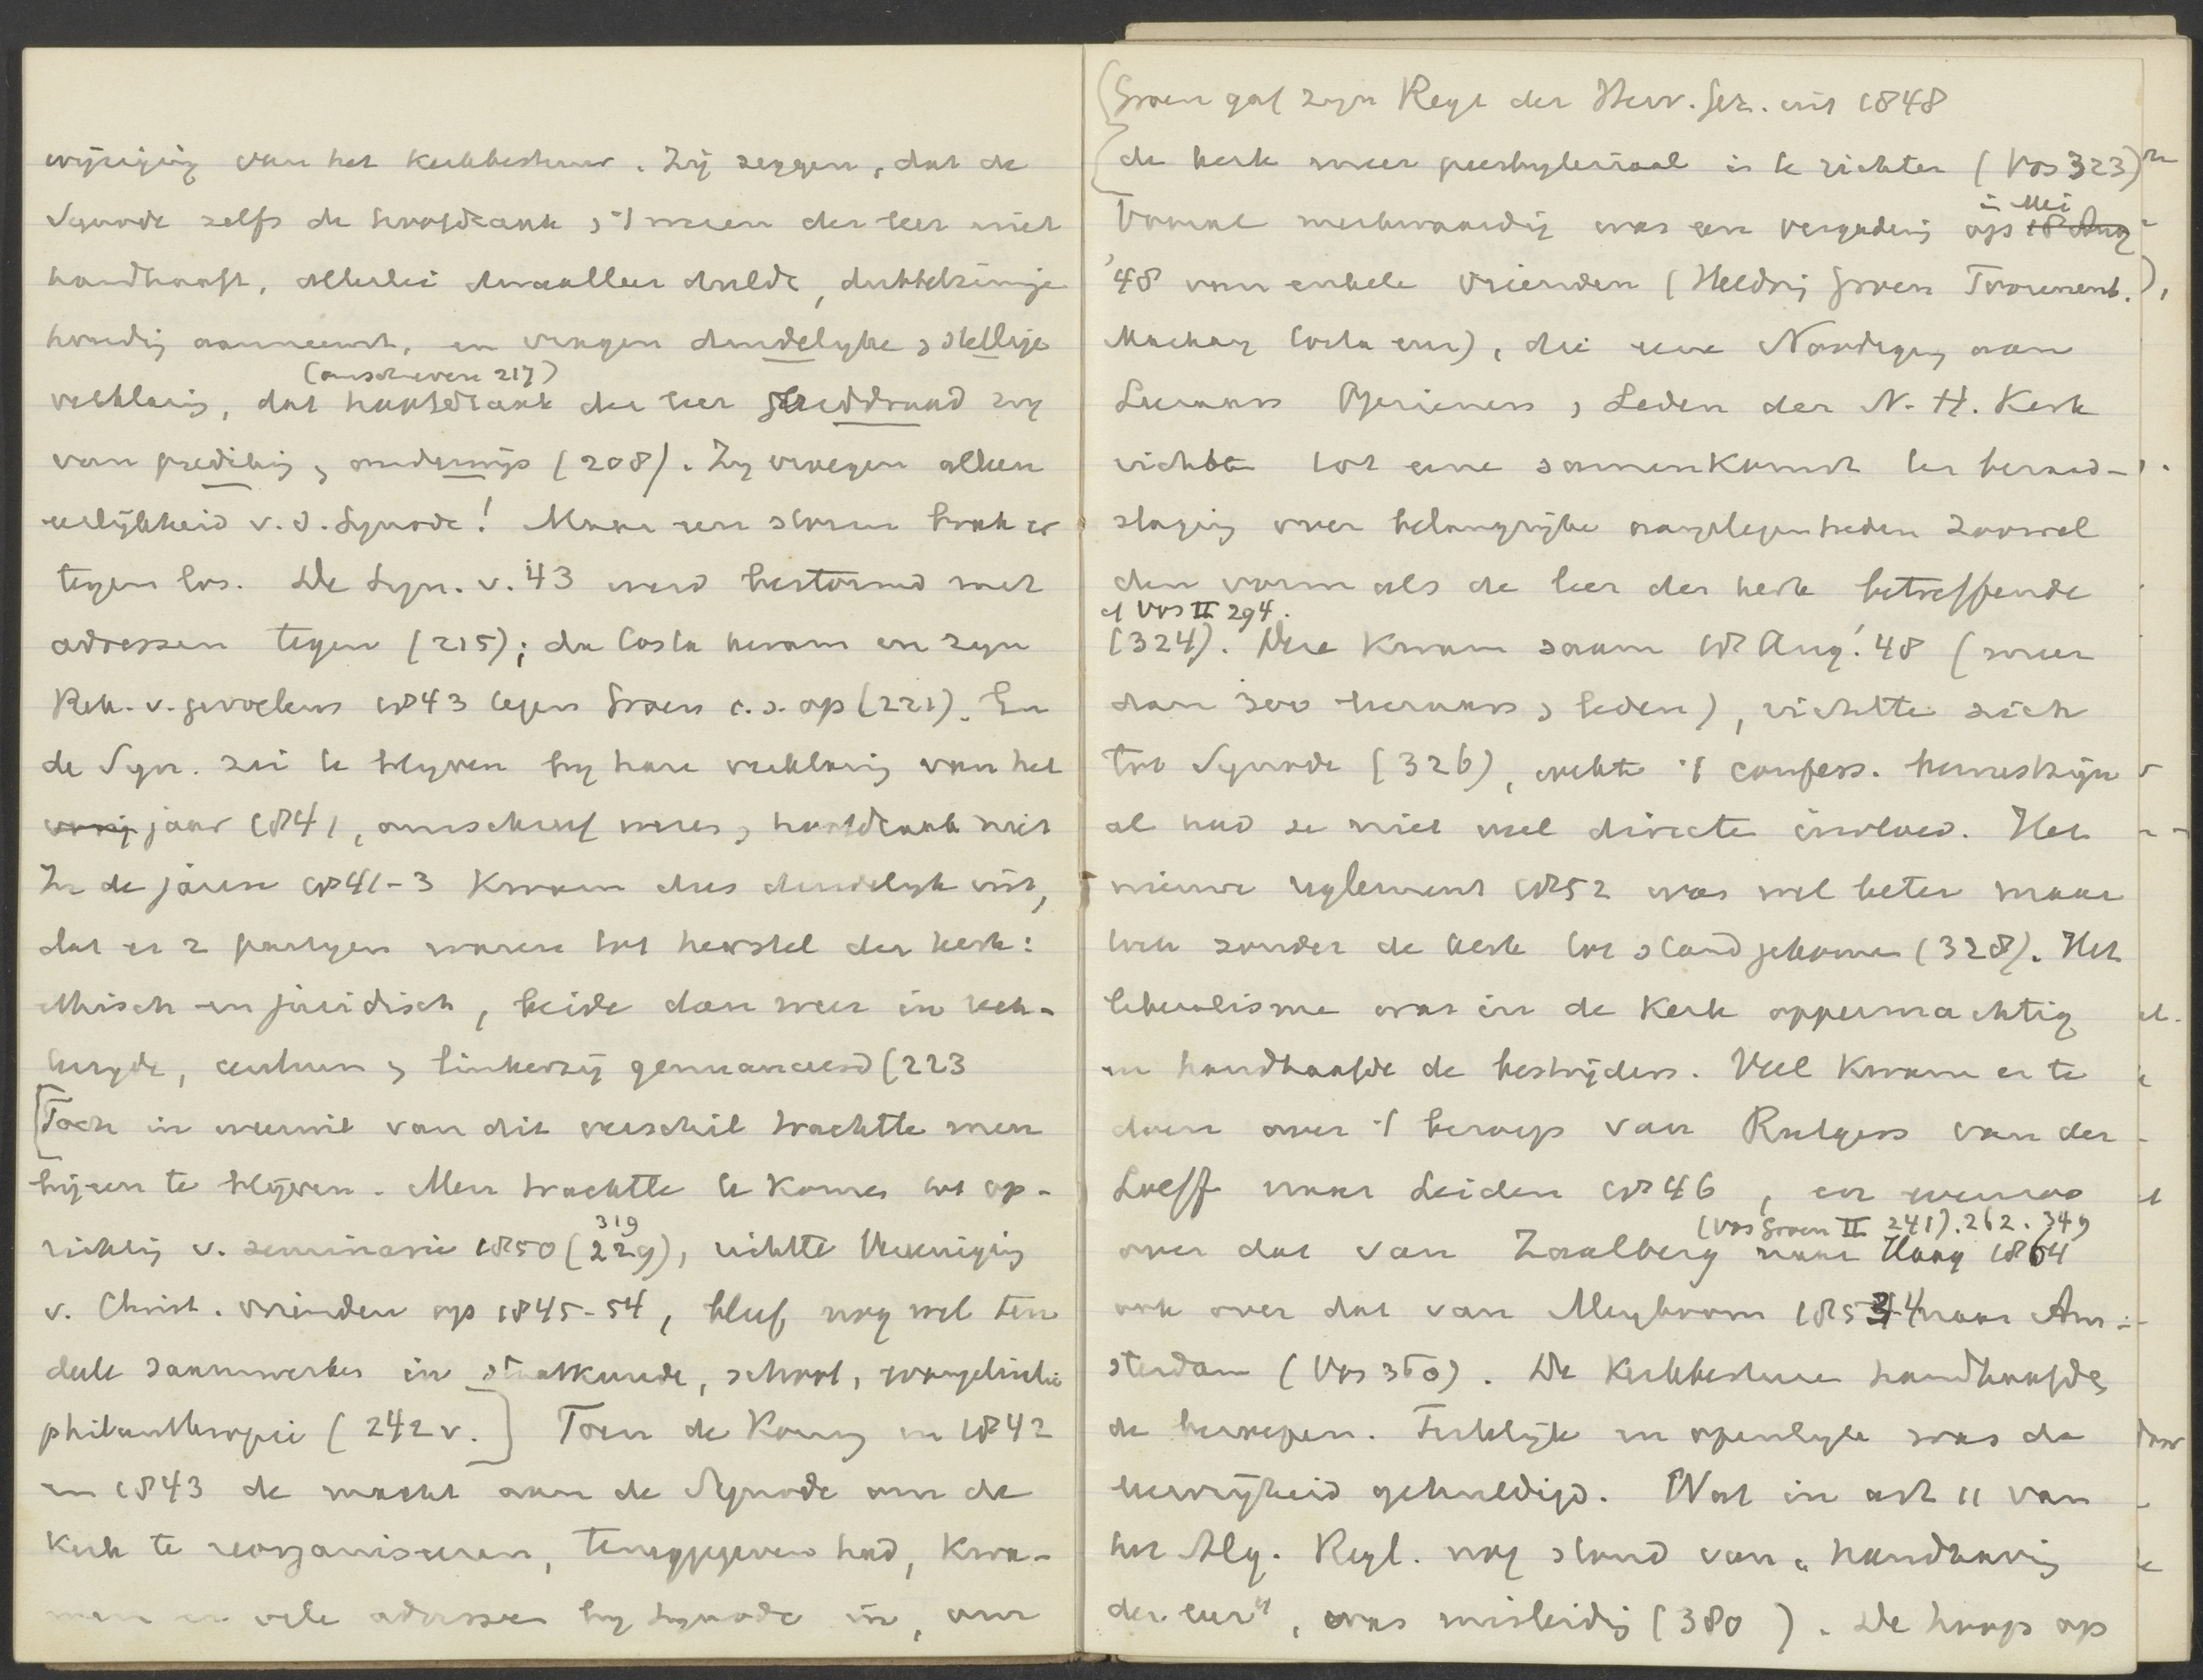 wijziging van het kerkbestuur. Zij zeggen, dat de
Synode zelfs de hoofdzaak & 't wezen der leer niet
handhaaft, allerlei dwaalleer duldt, dubbelzinnige
houding aanneemt, en vragen duidelyke & stellige
(omschreven 217)
verklaring, dat hoofdzaak der leer zij
van prediking & onderwijs (208). Zy vroegen alleen
eerlijkheid v. d. Synode! Maar een storm brak er
tegen los. De Syn. v. '43 werd bestormd met
adressen tegen (215); da Costa kwam in zyn
Rek. v. gevoelens 1843 tegen Groen c.s. op (221). En
de Syn. zei te blyven by hare verklaring van het
vorig jaar 1841, omschreef wezen & hoofdzaak niet
In de jaren 1841-3 kwam dus duidelyk uit,
dat er 2 partyen waren tot herstel der kerk:
ethisch en juridisch, beide dan weer in rech-
terzyde, centrum & linkerzij genuanceerd (223
[Toch in weerwil van dit verschil trachtte men
bijeen te blijven. Men trachtte te komen tot op-
319
richting v. seminarie 1850 (229), richtte Vereeniging
v. Christ. vrienden op 1845-54, bleef nog wel ten
deele saamwerken in staatkunde, school, evangelisatie
philanthropie (242 v.] Toen de Koning in 1842
en 1843 de macht aan de Synode om de
Kerk te reorganiseeren, teruggegeven had, kwa-
men er vele adressen by Synode in, om
(Groen gaf zyn Regt der Herv. Gez. uit 1848
de kerk meer presbyteriaal in te richten (Vos 323)
in Mei
Vooral merkwaardig was een vergadering op 18 Aug
'48 van enkele vrienden (Heldring Groen Twent.),
Mackay Costa enz), die eene Noodiging aan
Leeraars Opzieners & Leden der N. H. Kerk
richtten tot eene samenkomst ter beraad-
slaging over belangrijke aangelegenheden zoowel
den vorm als de leer der kerk betreffende
cf Vos II 294.
(324). Deze kwam saam 18 Aug. '48 (meer
dan 300 leeraars & leden), richtte zich
tot Synode (326), wekte 't confess. bewustzijn
al had ze niet veel directe invloed. Het
nieuwe reglement 1852 was wel beter maar
toch zonder de kerk tot stand gekomen (328). Het
liberalisme was in de Kerk oppermachtig
en handhaafde de bestrijders. Veel kwam er te
doen over 't beroep van Rutgers van der
Loeff naar Leiden 1846, en evenzoo
(Vos Groen II 241). 262. 349
over dat van Zaalberg naar Haag 1864
ook over dat van Meyboom 1854 naar Am-
sterdam (Vos 350). De Kerkbesturen handhaafden
de beroepen. Feitelijk en openlyk was de
leervrijheid gehuldigd. Wat in art 11 van
het Alg. Regl. nog stond van "handhaving
der leer", was misleiding (380). De hoop op